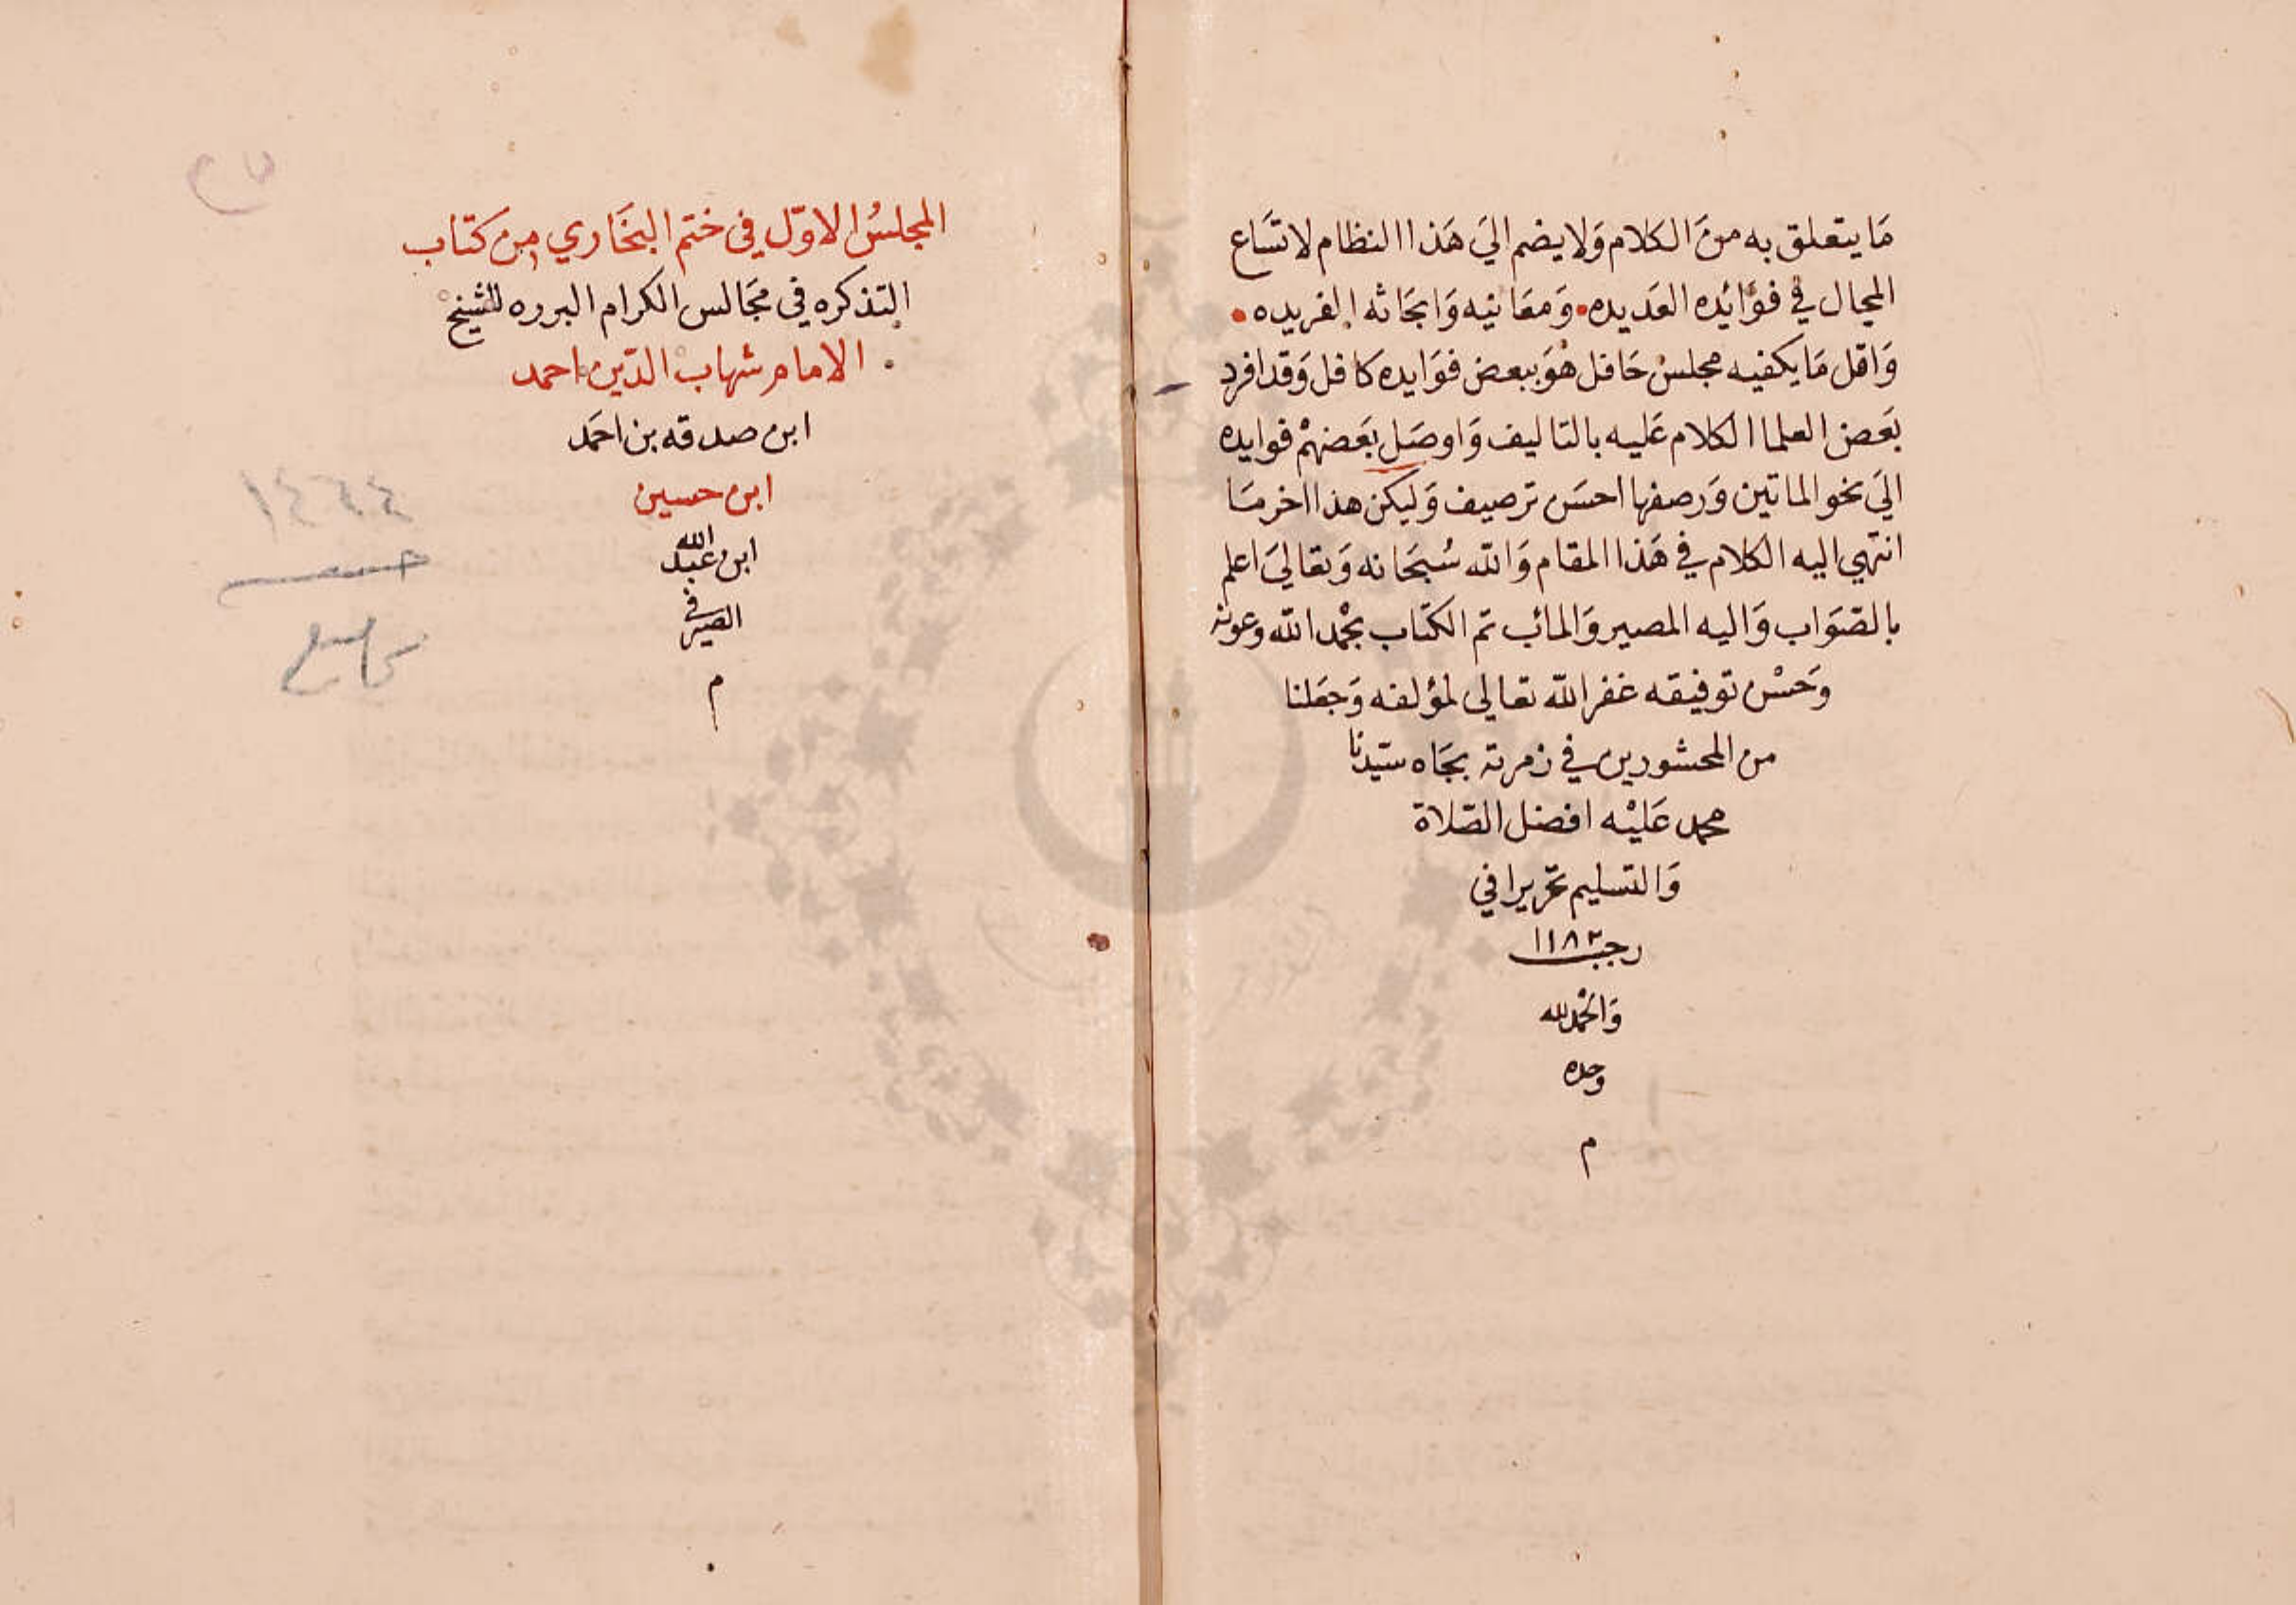 مَا يتعلق به منَ الكلام وَلا يضم اليَ هَذا النظام لاتسَاع
المجال في فوَائده العَديده • وَمعَانيه وَابحَاثه الفريده •
وَاقل مَا يكفيه مجلس حَافل هوَ ببعض فوَايده كافل وَقد افرد
بعَض العلما الكلام عَليه بالتاليف وَاوصَل بعَضهمْ فوايده
اليَ نحو الماتين وَرصفها احسَن ترصيف وَليكن هذا اخر مَا
انتهي اليه الكلام في هَذا المقام وَالله سُبحَانه وَتعَاليَ اعلم
بالصّوَاب وَاليه المصير وَالمائب تم الكتاب بحمْد الله وعونه
وَحسْن توفيقه غفر الله تعالي لمؤلفه وَجعَلنا
من المحشورين في زمرته بجَاه سيّدنا
محمد عَليْه افضل الصّلاة
وَالتسليم تحريرا في
رجب ١١٨٢
وَالحمْد لله
وحده
م
المجلسُ الاوّل في ختم البخَاري من كتاب
التذكره في مجَالس الكرام البرره للشيخ
الامام شهاب الدّين احمد
ابن صدقه بن احمَد
ابن حسين
ابن عبد الله
الصيرفي
م
١٤٦٤